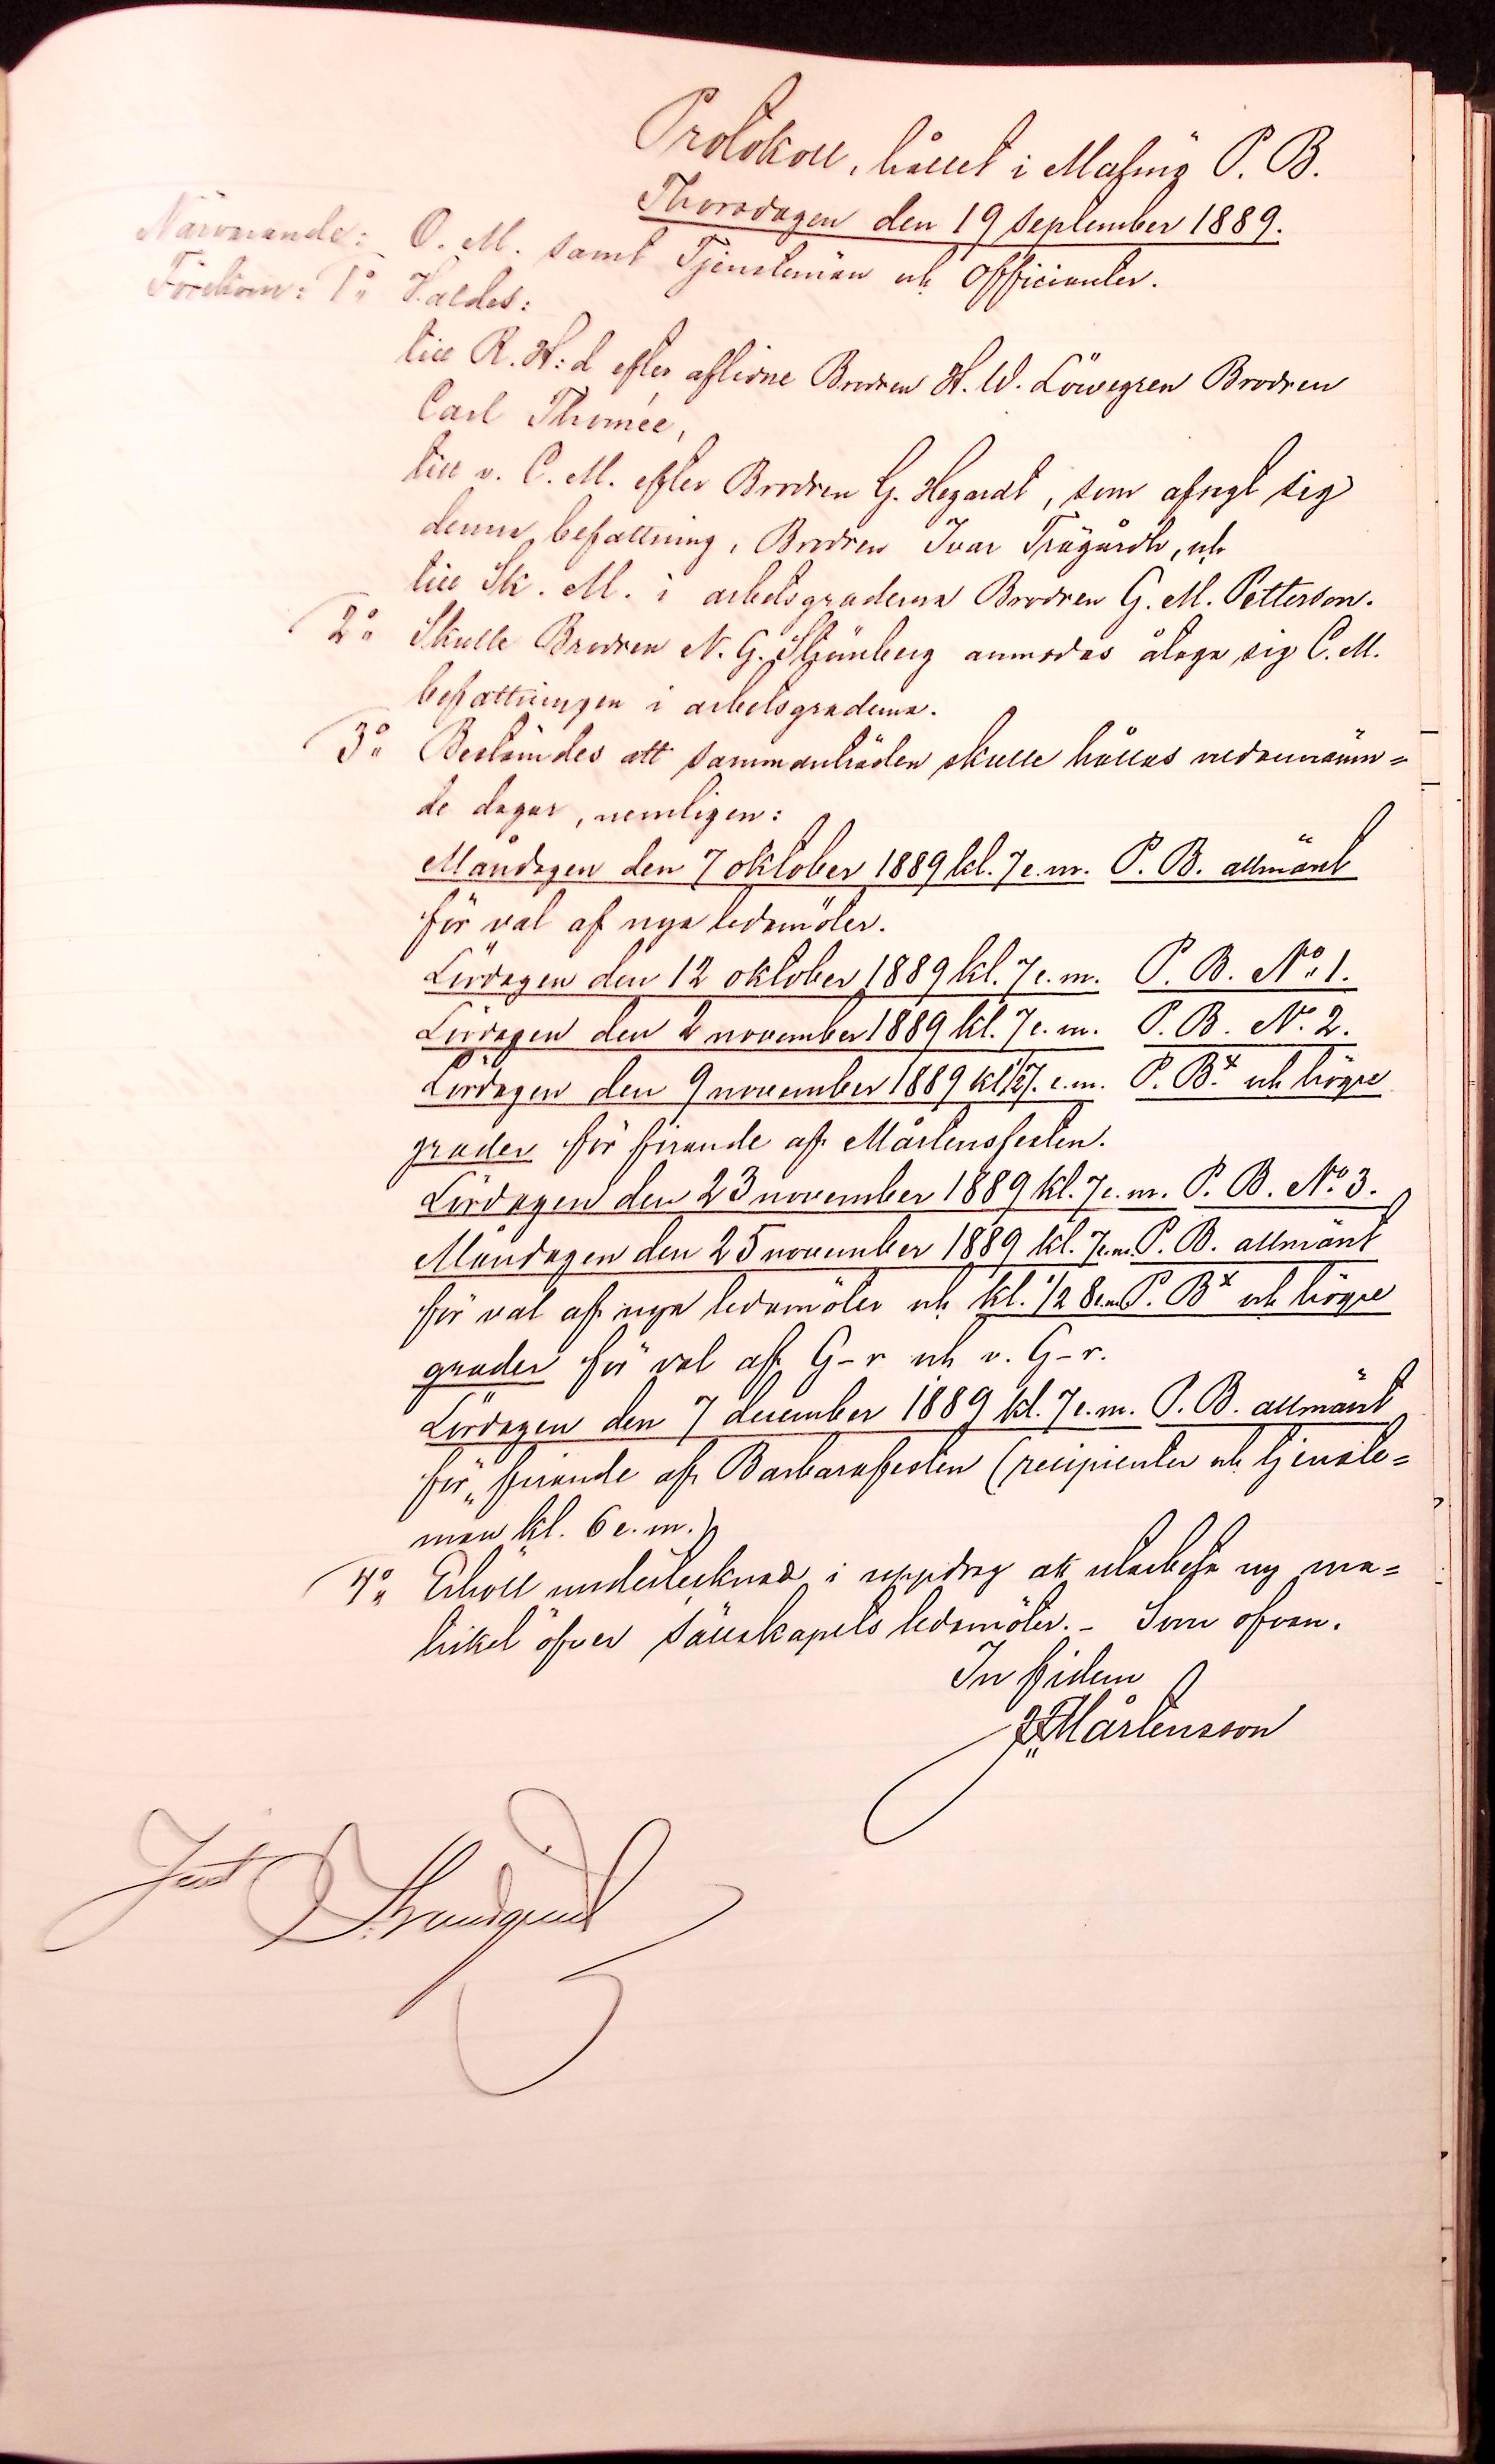 Protokoll, hållet i Malmö P. B.
Thorsdagen den 19 September 1889.
Närvarande: O. M. samt Tjenstemän och Officianter.
Förekom: 1:o Valdes:
till R. H:d efter aflidne Brodren H. W. Löwegren Brodren
Carl Thomée,
till v. C. M. efter Brodren G. Hegardt, som afsagt sig
denna befattning, Brodren Ivar Trägårdh, och
till Sk. M. i arbetsgraderna Brodren G. M. Petterson.
2:o Skulle Brodren N. G. anmodas åtaga sig C. M.
befattningen i arbetsgraderna.
3:o Bestämdes att sammanträden skulle hållas nedannämn=
de dagar, nemligen:
Måndagen den 7 oktober 1889 kl. 7 e. m. P. B. allmänt
för val af nya ledamöter.
Lördagen den 12 oktober 1889 kl. 7 e. m. P. B. No 1.
Lördagen den 2 november 1889 kl. 7 e. m. P. B. No 2.
Lördagen den 9 november 1889 kl. 1/2 7. e. m. P. B.x och högre
grader för firande af Mårtensfesten.
Lördagen den 23 november 1889 kl. 7 e. m. P. B. No 3.
Måndagen den 25 november 1889 kl. 7 e. m. P. B. allmänt
för val af nya ledamöter och kl. 1/2 8 e. m. P. Bx och högre
grader för val af G–r och v. G–r.
Lördagen den 7 december 1889 kl. 7 e. m. P. B. allmänt
för firande af Barbarafesten (recipienter och tjenste=
män kl. 6 e. m.)
4:o Erhöll undertecknad i uppdrag att utarbeta ny ma=
trikel öfver sällskapets ledamöter. – Som ofvan.
In fidem
Mårtensson
Just